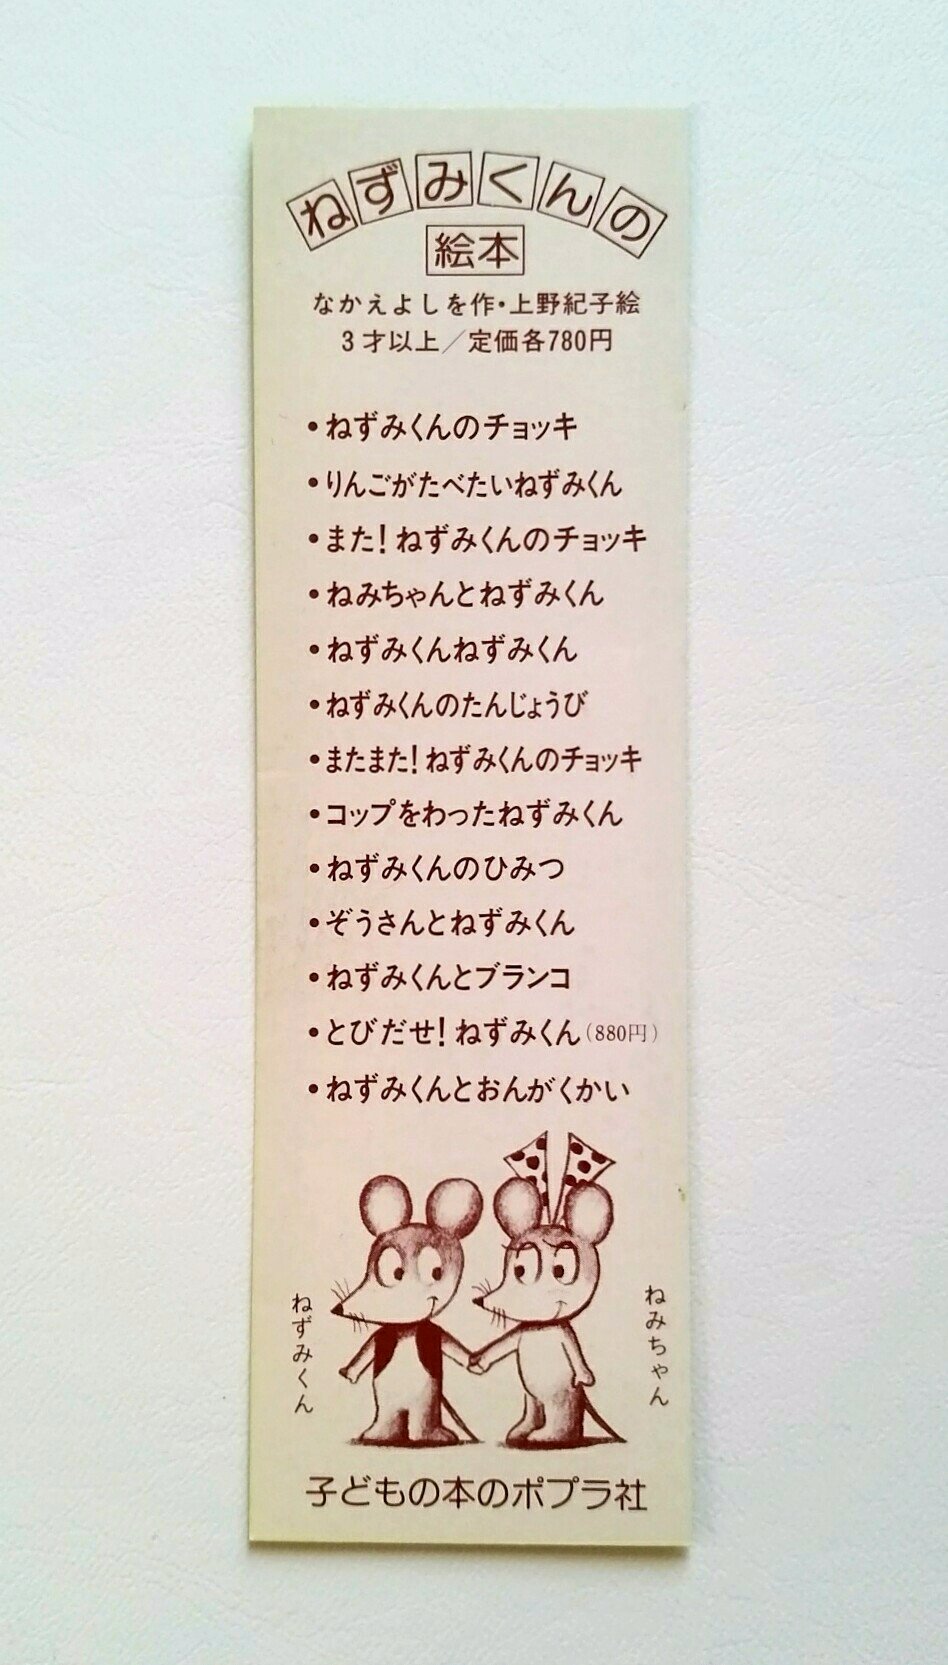 ねずみくんの
絵本
なかえよしを作・上野紀子絵
3才以上／定価各780円
・ねずみくんのチョッキ
・りんごがたべたいねずみくん
・また！ねずみくんのチョッキ
・ねみちゃんとねずみくん
・ねずみくんねずみくん
・ねずみくんのたんじょうび
・またまた！ねずみくんのチョッキ
・コップをわったねずみくん
・ねずみくんのひみつ
・ぞうさんとねずみくん
・ねずみくんとブランコ
・とびだせ！ねずみくん（880円）
・ねずみくんとおんがくかい
ねずみくん
ねみちゃん
子どもの本のポプラ社